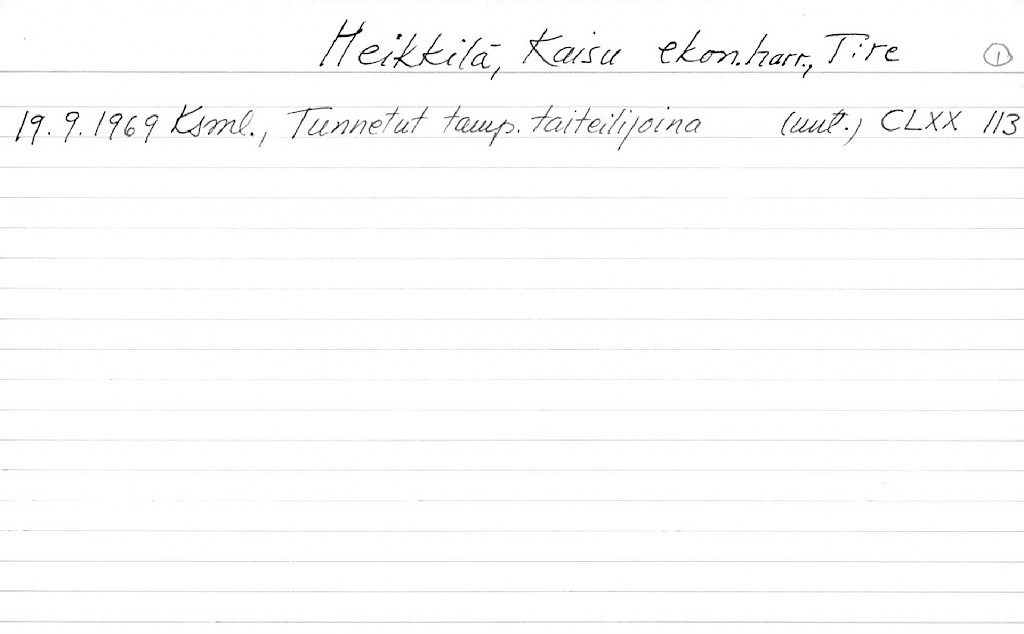 Heikkilä, Kaisu ekon.harr., T:re 1
19.9.1969 Ksml., Tunnetut tamp. taiteilijoina (uut.) CLXX 113